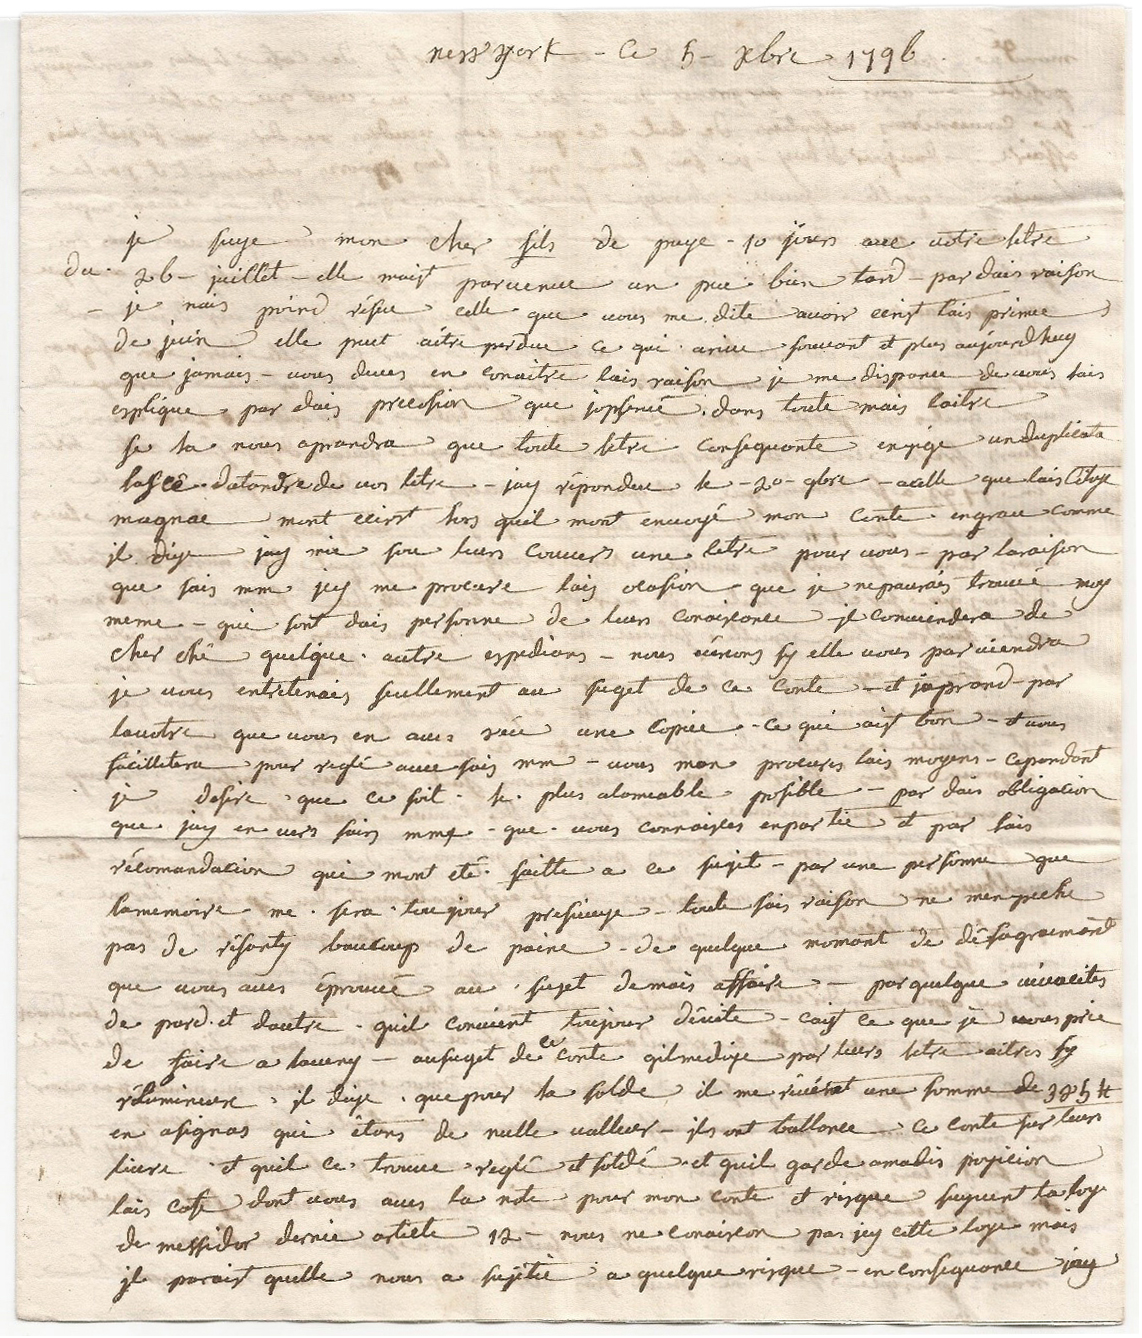 new york - Ce 5 - xbre 1796.
je suye mon cher fils de puye - 10 jours avec votre letre
du 26 - juillet - elle maist parvenue un peu bien tard - par dais raison
- je nais poind résue celle que vous me dite avoir ecrist lais primiee
de juin elle peut aitre perdue ce qui arive souvant et plus aujourdhuy
que jamais - vous deves en conaitre lais raison je me dispance de vous lais
esplique par dais precosion que jopserve dans toute mais laitre
se la nous aprandra que toute letre consequante enxige un duplicata
lassé datandre de vos letre - jay répondue le - 20 - 9bre - a celle que lais Citoye
magnac mont ecirst lors quil mont envoyé mon conte en grau comme
il dize jay mie sou leurs couvers une letre pour vous - par la raison
que sais mm jcy me procure lais ocasion que je ne pourais trouvé moy
meme - qui sont dais personne de leurs conaisance il conviendera de
cher ché quelque autre espedians - nous vérons sy elle vous parviendra
je vous entretenais seullement au suget de ce conte - et japrand par
la votre que vous en aves réçu une copiee - ce qui aist bon - et vous
facillitera pour reglé avec sais mm - vous man procures lais moyens - cependant
je desire que ce soit le plus alamiable posible - par dais obligation
que jay en vers sais mm - que vous connaises en partie et par lais
récomandacion qui mont été faitte a ce sujet - par une personne que
la memoire me sera toujour presieuze - toute sais raison ne menpeche
pas de résanty baucoup de paine - de quelque momant de désagraimant
que vous aves éprouvé au suget de mais affaire - par quelque vivacites
de pard et dautre quil convient toujour dévite - caist ce que je vous prie
de faire a laveny - au suget de ce conte qil me dize par leurs letre aitre sy
vélumineuse, il dize que pour la solde il me
en asignas qui étans de nulle valleur - ils ont ballancé ce conte sur leurs
livre et quil ce trouve reglé et soldé et quil garde a ma dis pozicion
lais cafe dont vous aves la note pour mon conte et risque suyvent la loye
de messidor dernie article 12 - nous ne conaison pas jcy cette loye mais
jl parait quelle nous a sujétie a quelque risque - en consequance jay